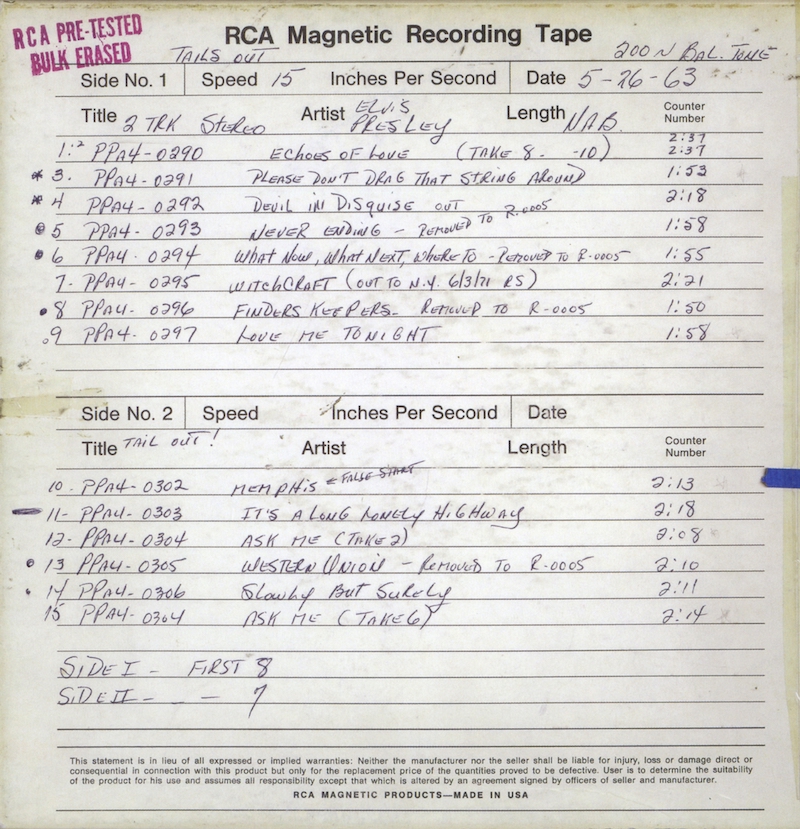 RCA PRE-TESTED
BULK ERASED
RCA Magnetic Recording Tape
TAILS OUT
200 N BAL. TONE
Side No. 1 Speed 15 Inches Per Second Date 5-26-63
Title 2 TRK STEREO Artist ELVIS PRESLEY Length NAB. Counter Number
2:37
1:2 PPA4-0290 ECHOES OF LOVE (TAKE 8- -10) 2:37
* 3. PPA4-0291 PLEASE DON'T DRAG THAT STRING AROUND 1:53
* 4 PPA4-0292 DEVIL IN DISGUISE OUT 2:18
5 PPA4-0293 NEVER ENDING - REMOVED TO R-0005 1:58
• 6 PPA4-0294 WHAT NOW, WHAT NEXT, WHERE TO - REMOVED TO R-0005 1:55
7- PPA4-0295 WITCHCRAFT (OUT TO N.Y. 6/3/71 RS) 2:21
• 8 PPA4-0296 FINDERS KEEPERS- REMOVED TO R-0005 1:50
. 9 PPA4-0297 LOVE ME TONIGHT 1:58
Side No. 2 Speed Inches Per Second Date
Title TAIL OUT! Artist Length Counter Number
10- PPA4-0302 MEMPHIS ← FALSE START 2:13
— 11- PPA4-0303 IT'S A LONG LONELY HIGHWAY 2:18
12- PPA4-0304 ASK ME (TAKE 2) 2:08
• 13 PPA4-0305 WESTERN UNION - REMOVED TO R-0005 2:10
• 14 PPA4-0306 SLOWLY BUT SURELY 2:11
15 PPA4-0304 ASK ME (TAKE 6) 2:14
SIDE I - FIRST 8
SIDE II - - - 7
This statement is in lieu of all expressed or implied warranties: Neither the manufacturer nor the seller shall be liable for injury, loss or damage direct or
consequential in connection with this product but only for the replacement price of the quantities proved to be defective. User is to determine the suitability
of the product for his use and assumes all responsibility except that which is altered by an agreement signed by officers of seller and manufacturer.
RCA MAGNETIC PRODUCTS—MADE IN USA